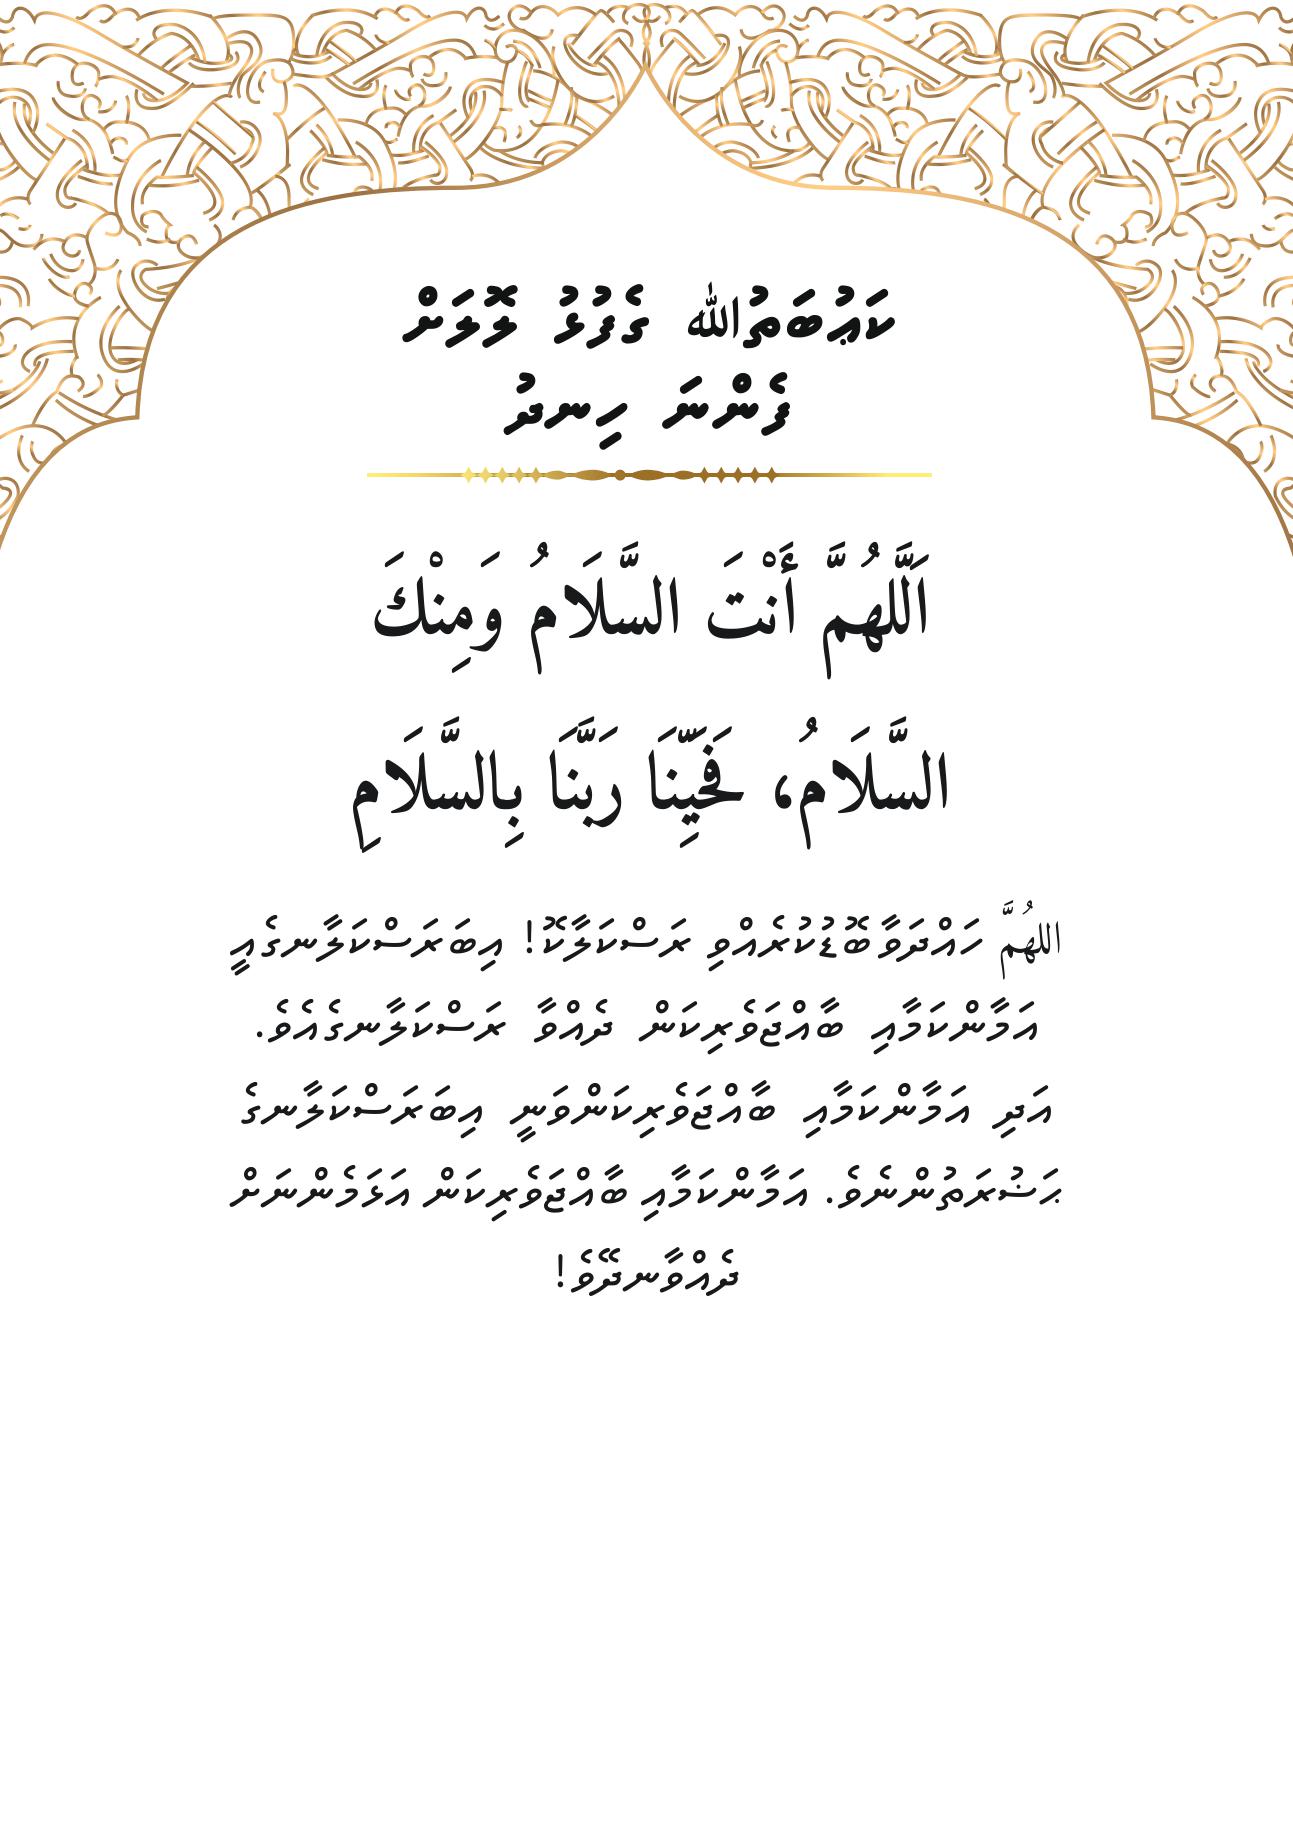 ކަޢުބަތުﷲ ގެފުޅު ލޮލަށް
ފެންނަ ހިނދު
اَللَّهُمَّ أَنْتَ السَّلَامُ وَمِنْكَ
السَّلَامُ، فَحَيِّنَا رَبَّنَا بِالسَّلَامِ
اللهُمَّ ހައްދަވާ ބޮޑުކުރެއްވި ރަސްކަލާކޮ! އިބަރަސްކަލާނގެއީ
އަމާންކަމާއި ބާއްޖަވެރިކަން ދެއްވާ ރަސްކަލާނގެއެވެ.
އަދި އަމާންކަމާއި ބާއްޖަވެރިކަންވަނީ އިބަރަސްކަލާނގެ
ޙަޟުރަތުންނެވެ. އަމާންކަމާއި ބާއްޖަވެރިކަން އަޅަމެންނަށް
ދެއްވާނދޭވެ!